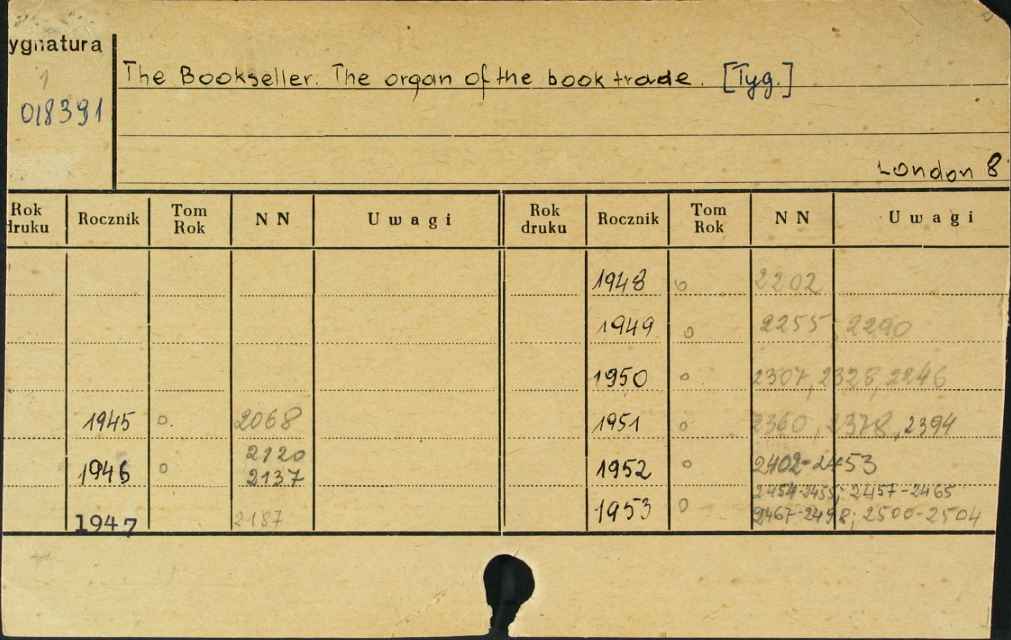 ygnatura
1
018391
The Bookseller. The organ of the book trade. [Tyg.]
London 8
Rok druku Rocznik Tom Rok N N Uwagi Rok druku Rocznik Tom Rok N N Uwagi
1948 o 2202
1949 o 2255 2290
1950 o 2307, 2328, 2346
1945 o. 2068 1951 o 2360, 2378, 2394
1946 o 2120 2137 1952 o 2402-2453
1947 2187 1953 o 2454-2455; 2457-2465
2467-2498; 2500-2504